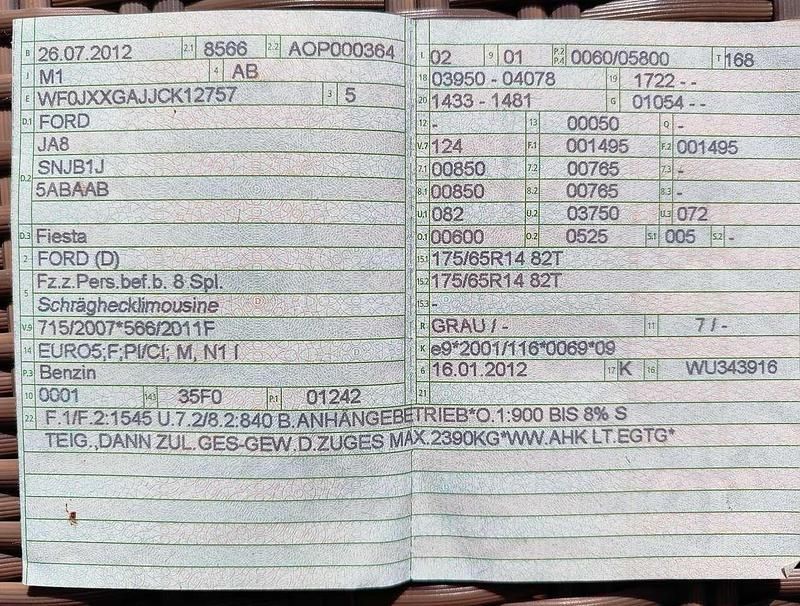 B 26.07.2012 2.1 8566 2.2 AOP000364
J M1 4 AB
E WF0JXXGAJJCK12757 3 5
D.1 FORD
JA8
D.2 SNJB1J
5ABAAB
D.3 Fiesta
2 FORD (D)
5 Fz.z.Pers.bef.b. 8 Spl.
Schräghecklimousine
V.9 715/2007*566/2011F
14 EURO5;F;PI/CI; M, N1 I
P.3 Benzin
10 0001 14.1 35F0 P.1 01242
L 02 9 01 P.2 P.4 0060/05800 T 168
18 03950 - 04078 19 1722 - -
20 1433 - 1481 G 01054 - -
12 - 13 00050 Q -
V.7 124 F.1 001495 F.2 001495
7.1 00850 7.2 00765 7.3 -
8.1 00850 8.2 00765 8.3 -
U.1 082 U.2 03750 U.3 072
O.1 00600 O.2 0525 S.1 005 S.2 -
15.1 175/65R14 82T
15.2 175/65R14 82T
15.3 -
R GRAU / - 11 7 / -
K e9*2001/116*0069*09
6 16.01.2012 17 K 16 WU343916
21
22 F.1/F.2:1545 U.7.2/8.2:840 B.ANHÄNGEBETRIEB*O.1:900 BIS 8% S
TEIG.,DANN ZUL.GES-GEW.D.ZUGES MAX.2390KG*WW.AHK LT.EGTG*